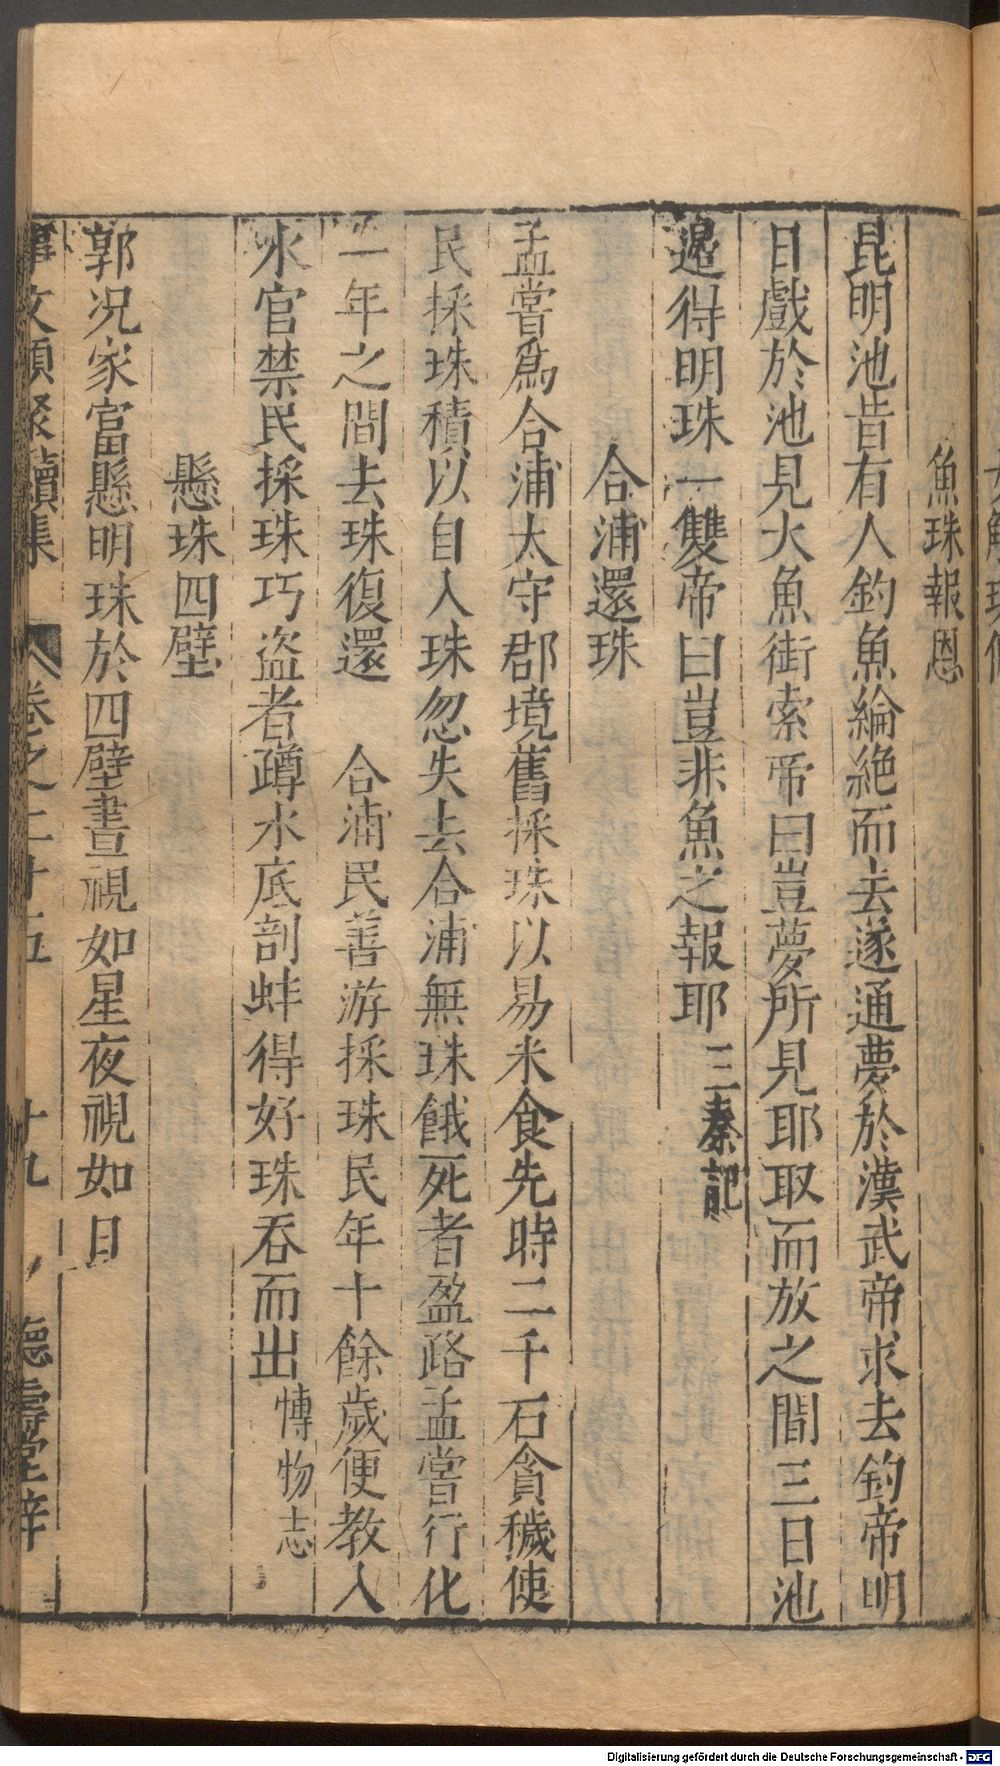 魚珠報恩
昆明池昔有人釣魚綸絶而去遂通夢於漢武帝求去釣帝明
日戲於池見大魚銜索帝曰豈夢所見耶取而放之間三日池
邉得明珠一雙帝曰豈非魚之報耶三秦記
合浦還珠
孟嘗爲合浦太守郡境舊採珠以易米食先時二千石貪穢使
民採珠積以自入珠忽失去合浦無珠餓死者盈路孟嘗行化
一年之間去珠復還 合浦民善游採珠民年十餘歲便教入
水官禁民採珠巧盗者蹲水底剖蚌得好珠吞而出 博物志
懸珠四壁
郭况家富懸明珠於四壁晝視如星夜視如日
事文類聚續集 卷之二十五 十九 德壽堂梓
Digitalisierung gefördert durch die Deutsche Forschungsgemeinschaft - DFG